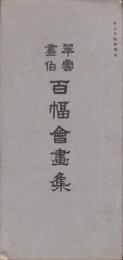 翠雲
畫伯
百幅會畫集